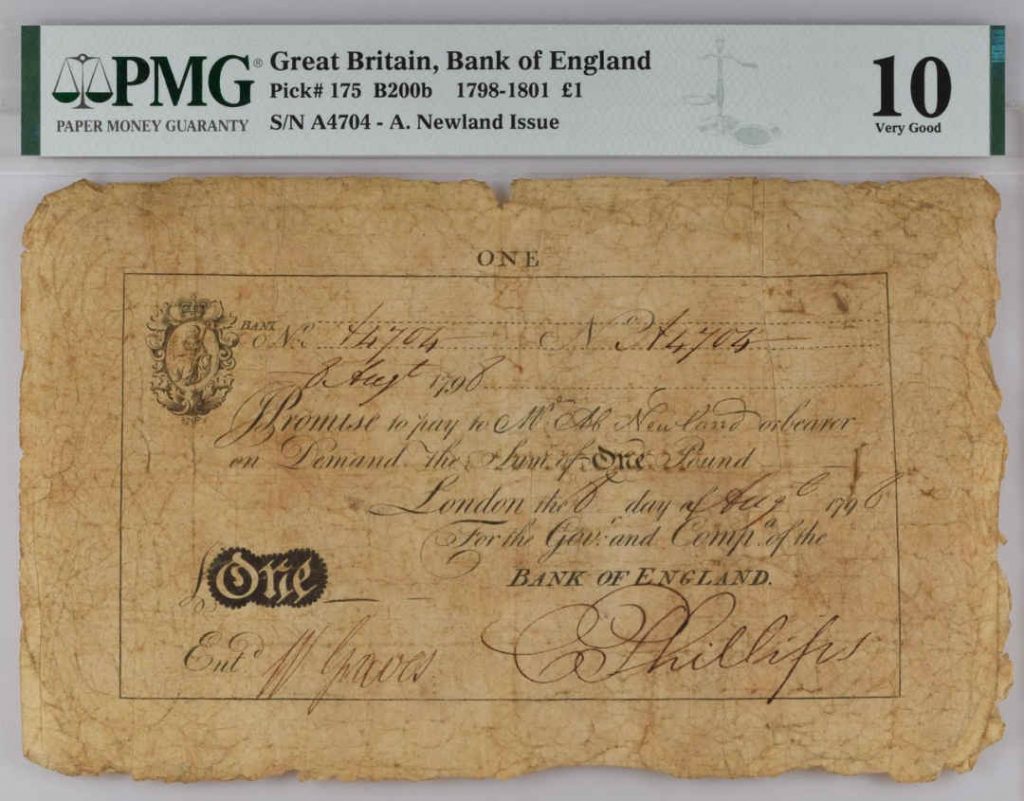 PMG® Great Britain, Bank of England
Pick# 175 B200b 1798-1801 £1
PAPER MONEY GUARANTY S/N A4704 - A. Newland Issue
10
Very Good
ONE
BANK No. A4704 No A4704
8 Augt 1798
I Promise to pay to Mr. Ab Newland or bearer
on Demand the Sum of One Pound
London the 8 day of Augt 1798
For the Govr. and Compa. of the
BANK OF ENGLAND.
£ One
Entd W Graves
C Phillips